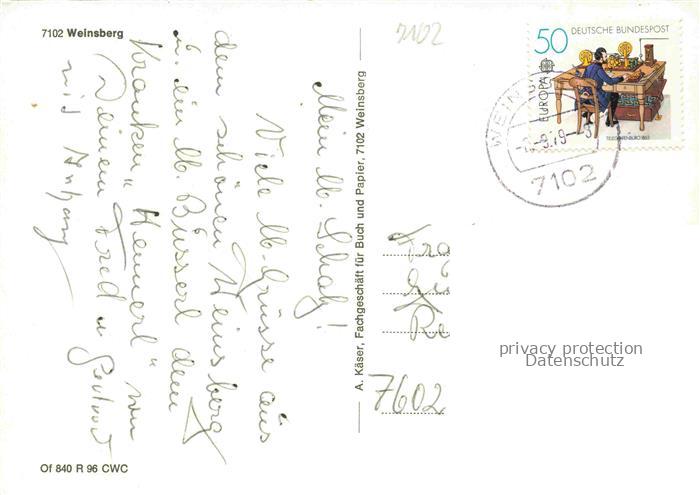 7102 Weinsberg
7102
50 DEUTSCHE BUNDESPOST
EUROPA
TELEGRAFENBÜRO 1863
WEIN
-9.79-
7102
Mein lb. Schatz!
Viele lb. Grüsse aus
dem schönen Weinsberg
u. ein lb. Busserl dem
Kranken "Hennerl" von
Deinem Fred u
mit Anhang
A. Käser, Fachgeschäft für Buch und Papier, 7102 Weinsberg
Re
7602
privacy protection
Datenschutz
Of 840 R 96 CWC